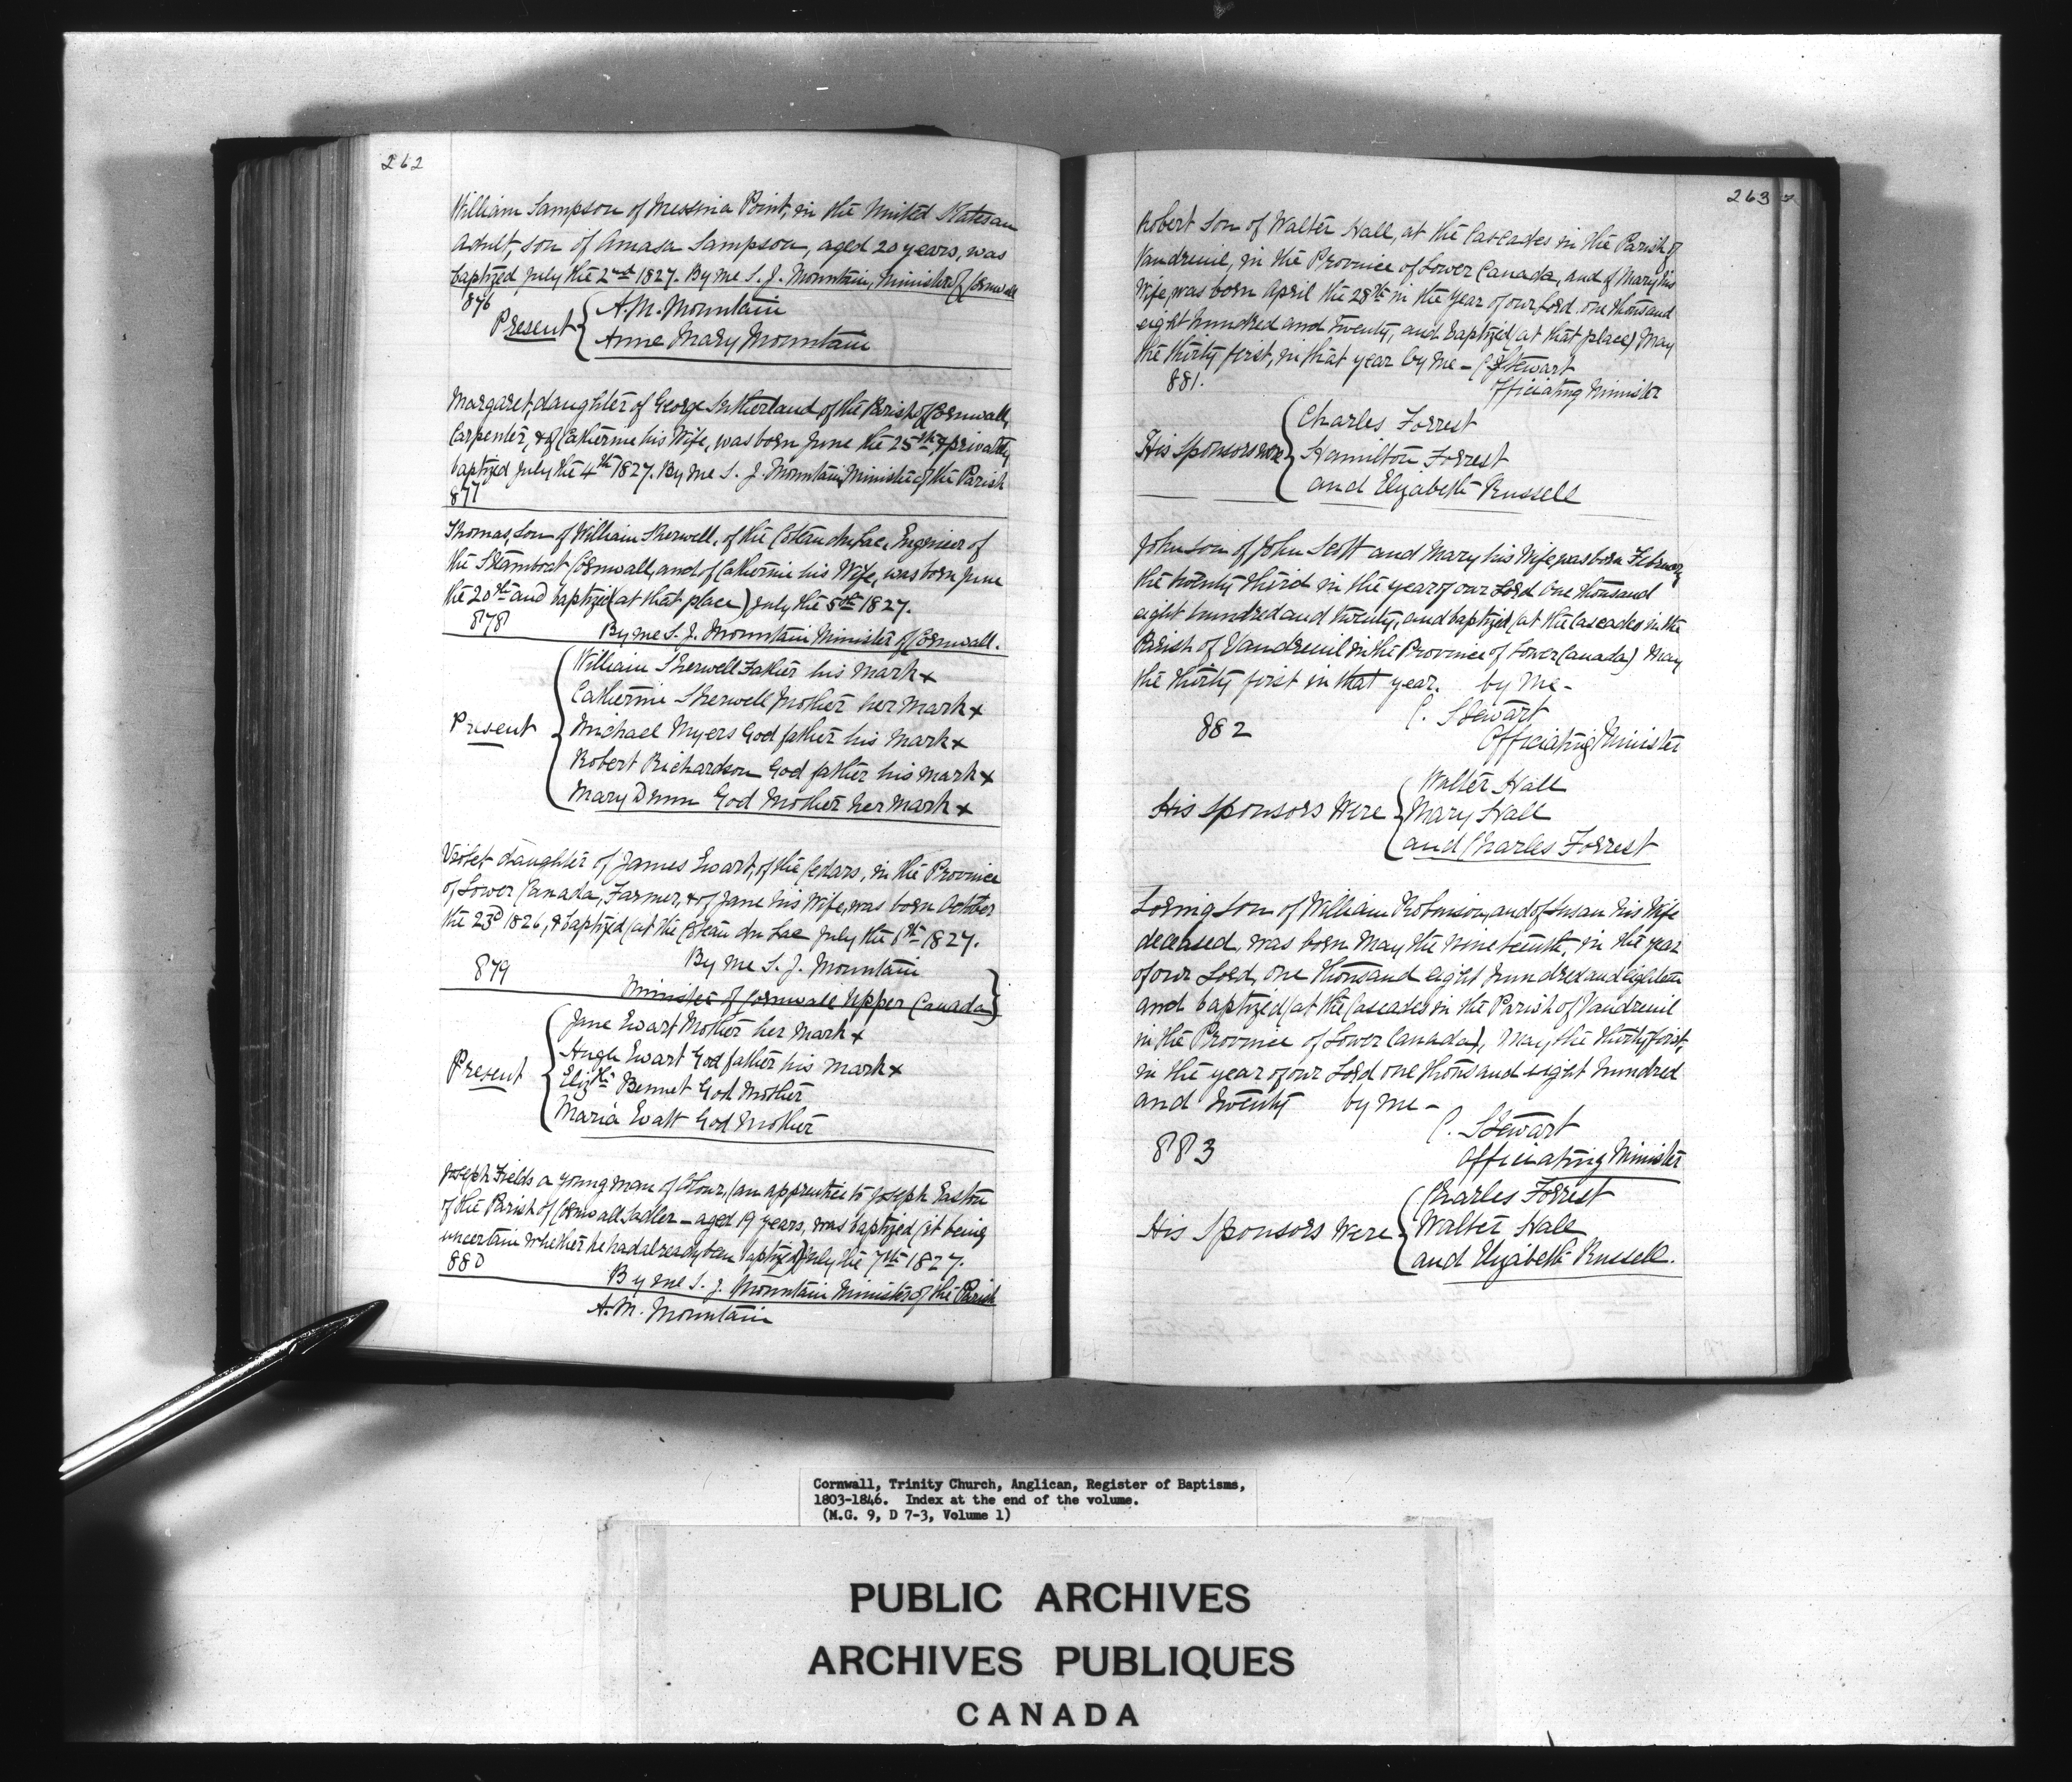 262
William Sampson of Messina Point, in the United States an
Adult, son of Amasa Sampson, aged 20 years, was
baptized July the 2nd 1827. By me S. J. Mountain, Minister of Cornwall
876
Present { A. M. Mountain
Anne Mary Mountain
Margaret, daughter of George Sutherland of the Parish of Cornwall,
Carpenter, & of Catherine his Wife, was born June the 25th & privately
baptized July the 4th 1827. By me S. J. Mountain Minister of the Parish
877
Thomas, Son of William Sherwell, of the Coteau du Lac, Engineer of
the Steamboat Cornwall, and of Catherine his Wife, was born June
the 20th and baptized (at that place) July the 5th 1827.
878 By me S. J. Mountain Minister of Cornwall.
Present { William Sherwell Father his mark x
Catherine Sherwell Mother her mark x
Michael Myers God father his mark x
Robert Richardson God father his mark x
Mary Dunn God Mother her mark x
Violet daughter of James Ewart, of the Cedars, in the Province
of Lower Canada, Farmer, & of Jane his Wife, was born October
the 23d 1826, & baptized (at the Coteau du Lac July the 6th 1827.
By me S. J. Mountain
879 Minister of Cornwall Upper Canada }
Present { Jane Ewart Mother her mark x
Hugh Ewart God father his mark x
Elizth Bennet God Mother
Maria Watt God Mother
Joseph Fields a young man of Colour, (an apprentice to Joseph Easton
of the Parish of Cornwall Sadler - aged 19 years, was baptized (it being
uncertain whether he had already been baptized) July the 7th 1827.
880
By me S. J. Mountain Minister of the Parish
A. M. Mountain
263
Robert Son of Walter Hall, at the Cascades in the Parish of
Vaudreuil, in the Province of Lower Canada, and of Mary his
Wife, was born April the 28th in the Year of our Lord one thousand
eight hundred and twenty, and baptized (at that place) May
the thirty first, in that year by me - C. Stewart
881. Officiating Minister
His Sponsors were { Charles Forrest
Hamilton Forrest
and Elizabeth Russell
John Son of John Scott and Mary his Wife was born February
the twenty third in the year of our Lord One thousand
eight hundred and twenty, and baptized (at the Cascades in the
Parish of Vaudreuil in the Province of Lower Canada) May
the thirty first in that year. by me -
C. Stewart
882 Officiating Minister
His Sponsors Were { Walter Hall
Mary Hall
and Charles Forrest
Loring Son of William Robinson, and of Susan his Wife
deceased, was born May the nineteenth, in the year
of our Lord, one thousand eight hundred and eighteen
and baptized (at the Cascades in the Parish of Vaudreuil
in the Province of Lower Canada), May the thirty first,
in the year of our Lord one thousand eight hundred
and twenty by me -
C. Stewart
883 Officiating Minister
His Sponsors Were { Charles Forrest
Walter Hall
and Elizabeth Russell.
Cornwall, Trinity Church, Anglican, Register of Baptisms,
1803-1846. Index at the end of the volume.
(M.G. 9, D 7-3, Volume 1)
PUBLIC ARCHIVES
ARCHIVES PUBLIQUES
CANADA